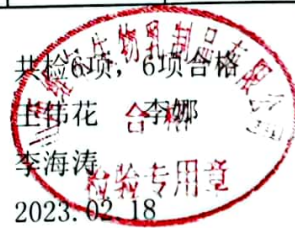 共检6项，6项合格
王伟花 李娜
李海涛
2023.02.18
生物乳制品有限公司
合格
检验专用章